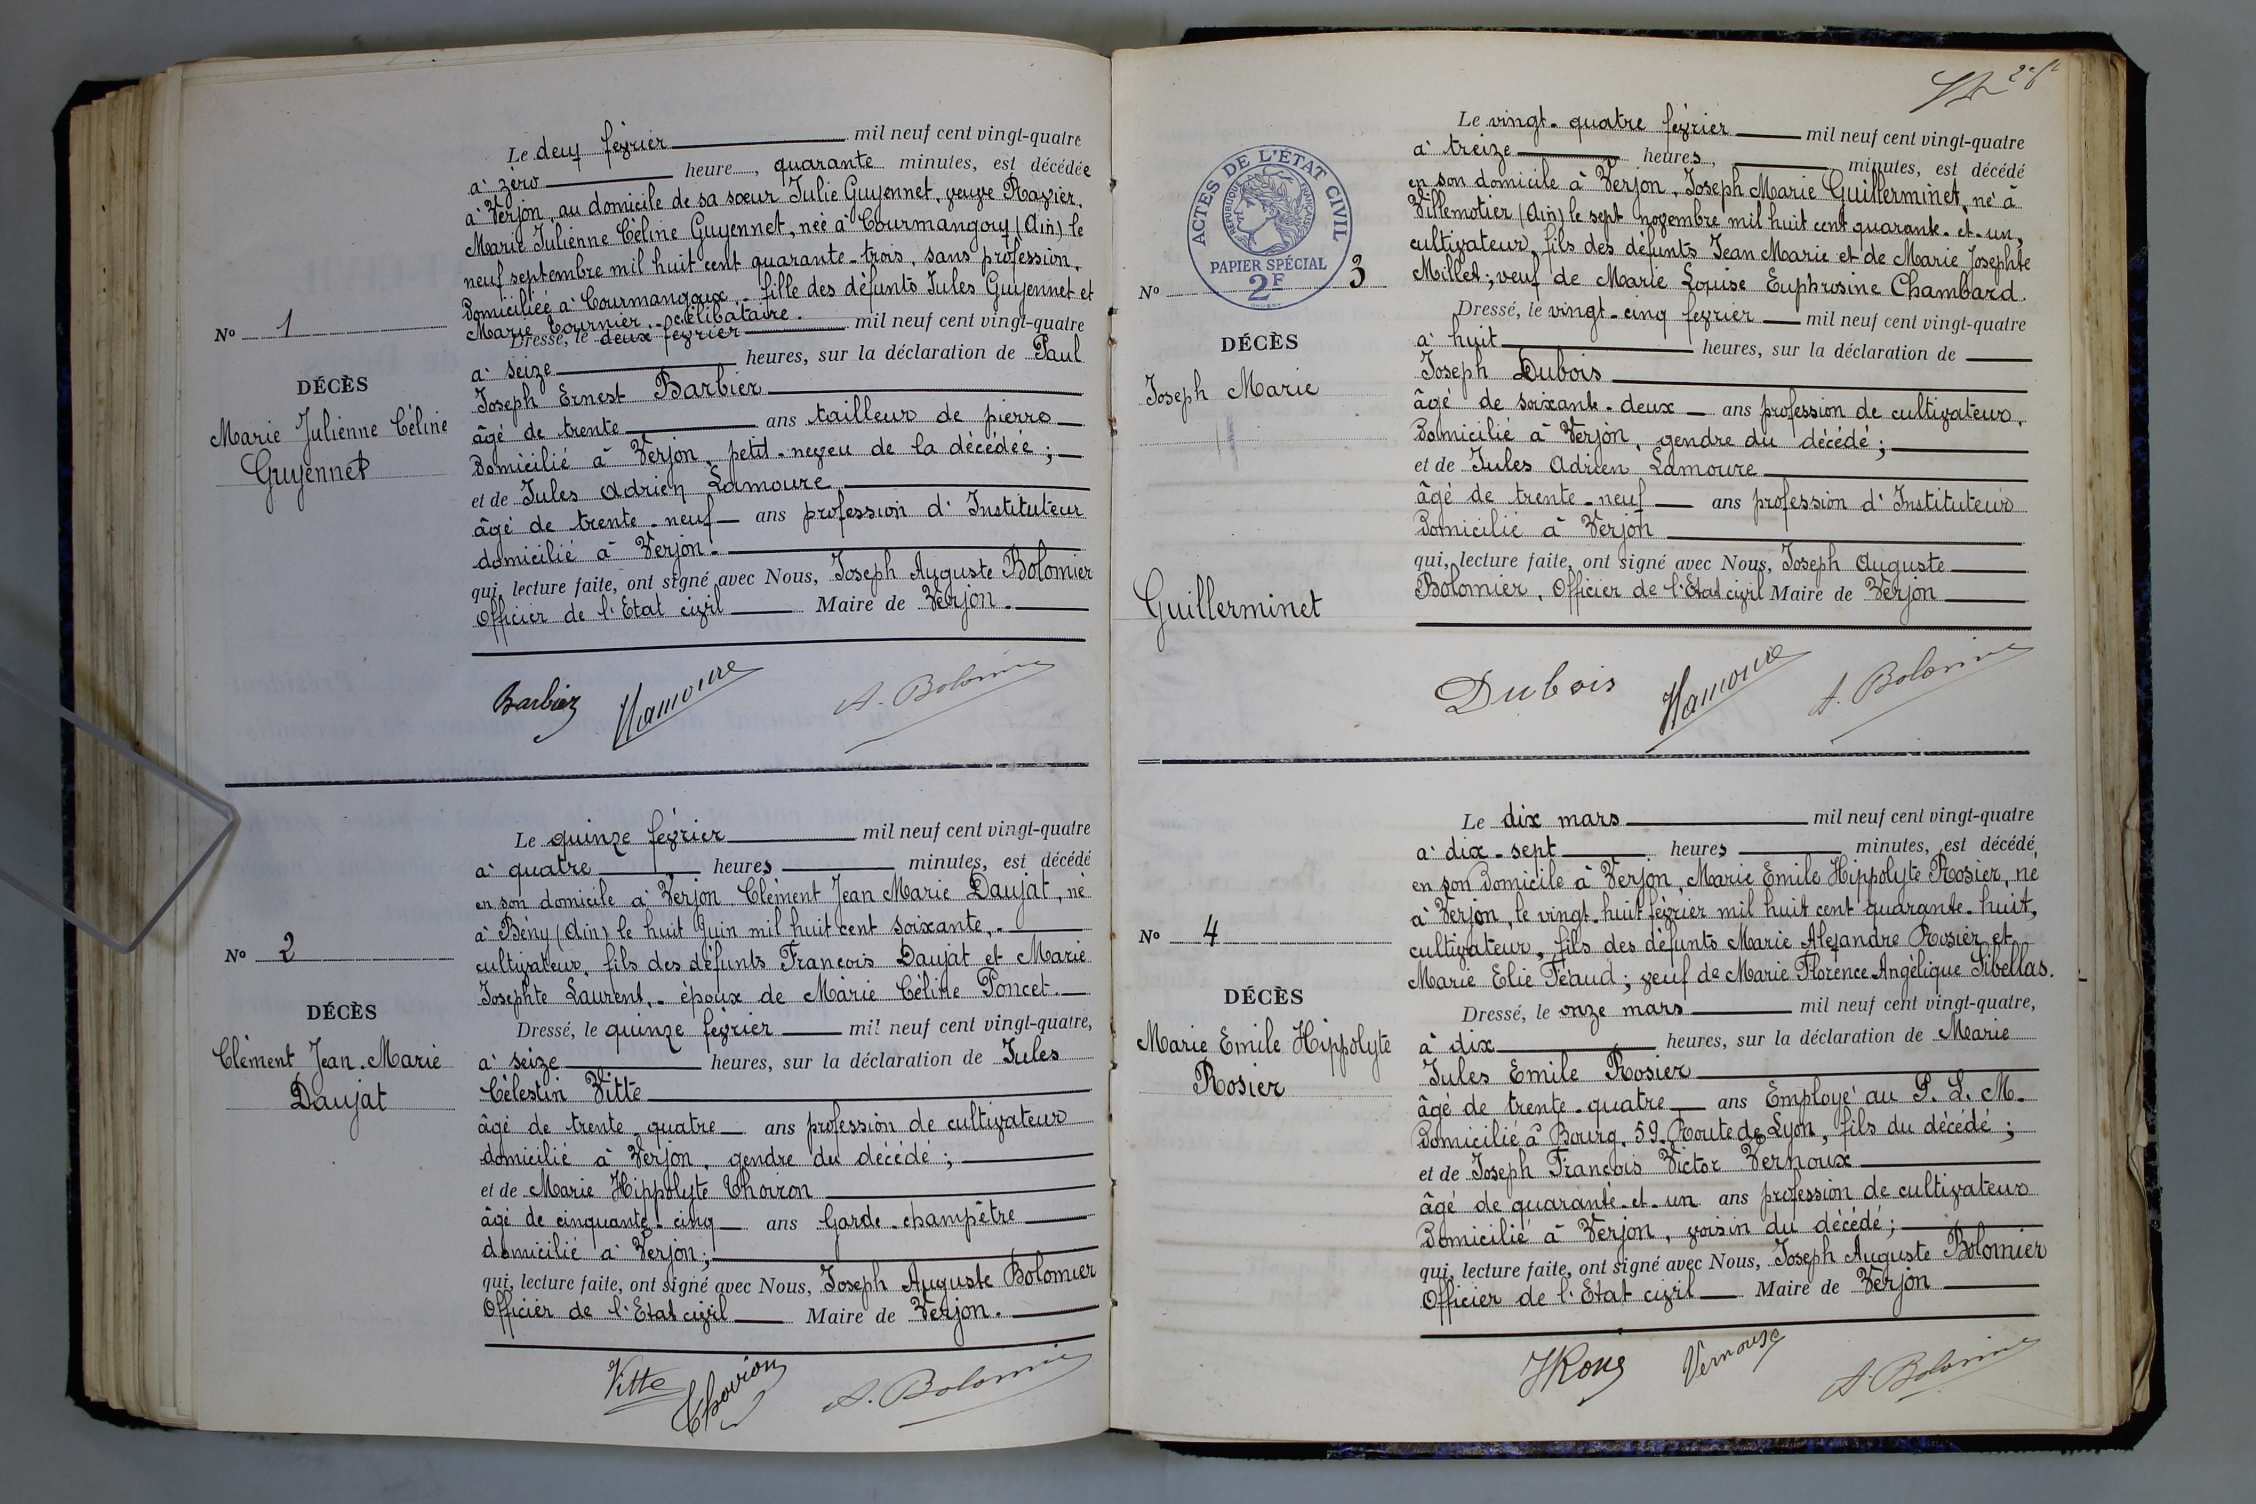 Le deux février mil neuf cent vingt-quatre
à zéro heure, quarante minutes, est décédée
à Verjon, au domicile de sa sœur Julie Guyennet, veuve Razier,
Marie Julienne Céline Guyennet, née à Courmangoux (Ain) le
neuf septembre mil huit cent quarante-trois, sans profession,
domiciliée à Courmangoux, - fille des défunts Jules Guyennet et
Marie Tournier, - célibataire.
Dressé, le deux février mil neuf cent vingt-quatre
à seize heures, sur la déclaration de Paul
Joseph Ernest Barbier
âgé de trente ans tailleur de pierre
domicilié à Verjon, petit-neveu de la décédée;
et de Jules Adrien Lamoure
âgé de trente-neuf ans profession d'Instituteur
domicilié à Verjon.
qui, lecture faite, ont signé avec Nous, Joseph Auguste Bolomier
Officier de l'Etat civil Maire de Verjon.
No 1
DÉCÈS
Marie Julienne Céline
Guyennet
Barbier Lamoure A. Bolomier
Le quinze février mil neuf cent vingt-quatre
à quatre heures minutes, est décédé
en son domicile à Verjon Clément Jean Marie Daujat, né
à Bény (Ain) le huit juin mil huit cent soixante, -
cultivateur, fils des défunts François Daujat et Marie
Josephte Laurent, - époux de Marie Céline Poncet.
Dressé, le quinze février mil neuf cent vingt-quatre,
à seize heures, sur la déclaration de Jules
Célestin Vitte
âgé de trente-quatre ans profession de cultivateur
domicilié à Verjon, gendre du décédé;
et de Marie Hippolyte Thoiron
âgé de cinquante-cinq ans Garde-champêtre
domicilié à Verjon;
qui, lecture faite, ont signé avec Nous, Joseph Auguste Bolomier
Officier de l'Etat civil Maire de Verjon.
No 2
DÉCÈS
Clément Jean-Marie
Daujat
Vitte Thoiron A. Bolomier
ACTES DE L'ÉTAT CIVIL
RÉPUBLIQUE FRANÇAISE
PAPIER SPÉCIAL
2F
Le vingt-quatre février mil neuf cent vingt-quatre
à treize heures, minutes, est décédé
en son domicile à Verjon, Joseph Marie Guillerminet, né à
Villemotier (Ain) le sept novembre mil huit cent quarante-et-un,
cultivateur, fils des défunts Jean Marie et de Marie Josephte
Millet; veuf de Marie Louise Euphrosine Chambard.
Dressé, le vingt-cinq février mil neuf cent vingt-quatre
à huit heures, sur la déclaration de
Joseph Dubois
âgé de soixante-deux ans profession de cultivateur,
domicilié à Verjon, gendre du décédé;
et de Jules Adrien Lamoure
âgé de trente-neuf ans profession d'Instituteur
domicilié à Verjon
qui, lecture faite, ont signé avec Nous, Joseph Auguste
Bolomier, Officier de l'Etat civil Maire de Verjon
No 3
DÉCÈS
Joseph Marie
Guillerminet
Dubois Lamoure A. Bolomier
Le dix mars mil neuf cent vingt-quatre
à dix-sept heures minutes, est décédé
en son domicile à Verjon, Marie Emile Hippolyte Rosier, né
à Verjon, le vingt-huit février mil huit cent quarante-huit,
cultivateur, fils des défunts Marie Alexandre Rosier et
Marie Elie Féaud; veuf de Marie Florence Angélique Sibellas.
Dressé, le onze mars mil neuf cent vingt-quatre,
à dix heures, sur la déclaration de Marie
Jules Emile Rosier
âgé de trente-quatre ans Employé au P. L. M.
domicilié à Bourg, 59, Route de Lyon, fils du décédé;
et de Joseph François Victor Vernoux
âgé de quarante-et-un ans profession de cultivateur
domicilié à Verjon, voisin du décédé;
qui, lecture faite, ont signé avec Nous, Joseph Auguste Bolomier
Officier de l'Etat civil Maire de Verjon
No 4
DÉCÈS
Marie Emile Hippolyte
Rosier
Vernoux A. Bolomier